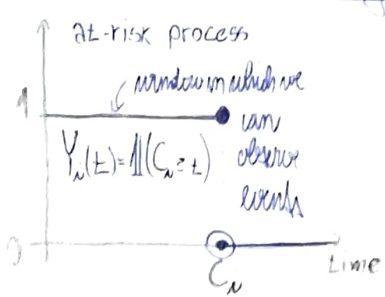 at-risk process
window in which we
can
observe
events
1
Yᵢ(t)=𝟙(Cᵢ≥t)
0
Cᵢ
time